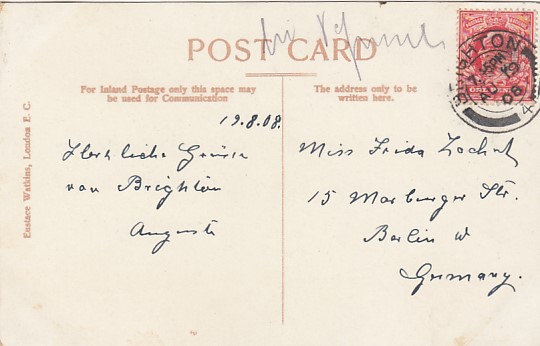 POST CARD
For Inland Postage only this space may
be used for Communication
The address only to be
written here.
BRIGHTON
ONE PENNY
19.8.08.
Herzliche Grüsse
von Brighton
Auguste
Miss Frida
15 Marburger Str.
Berlin W
Germany.
Eustace Watkins, London E. C.